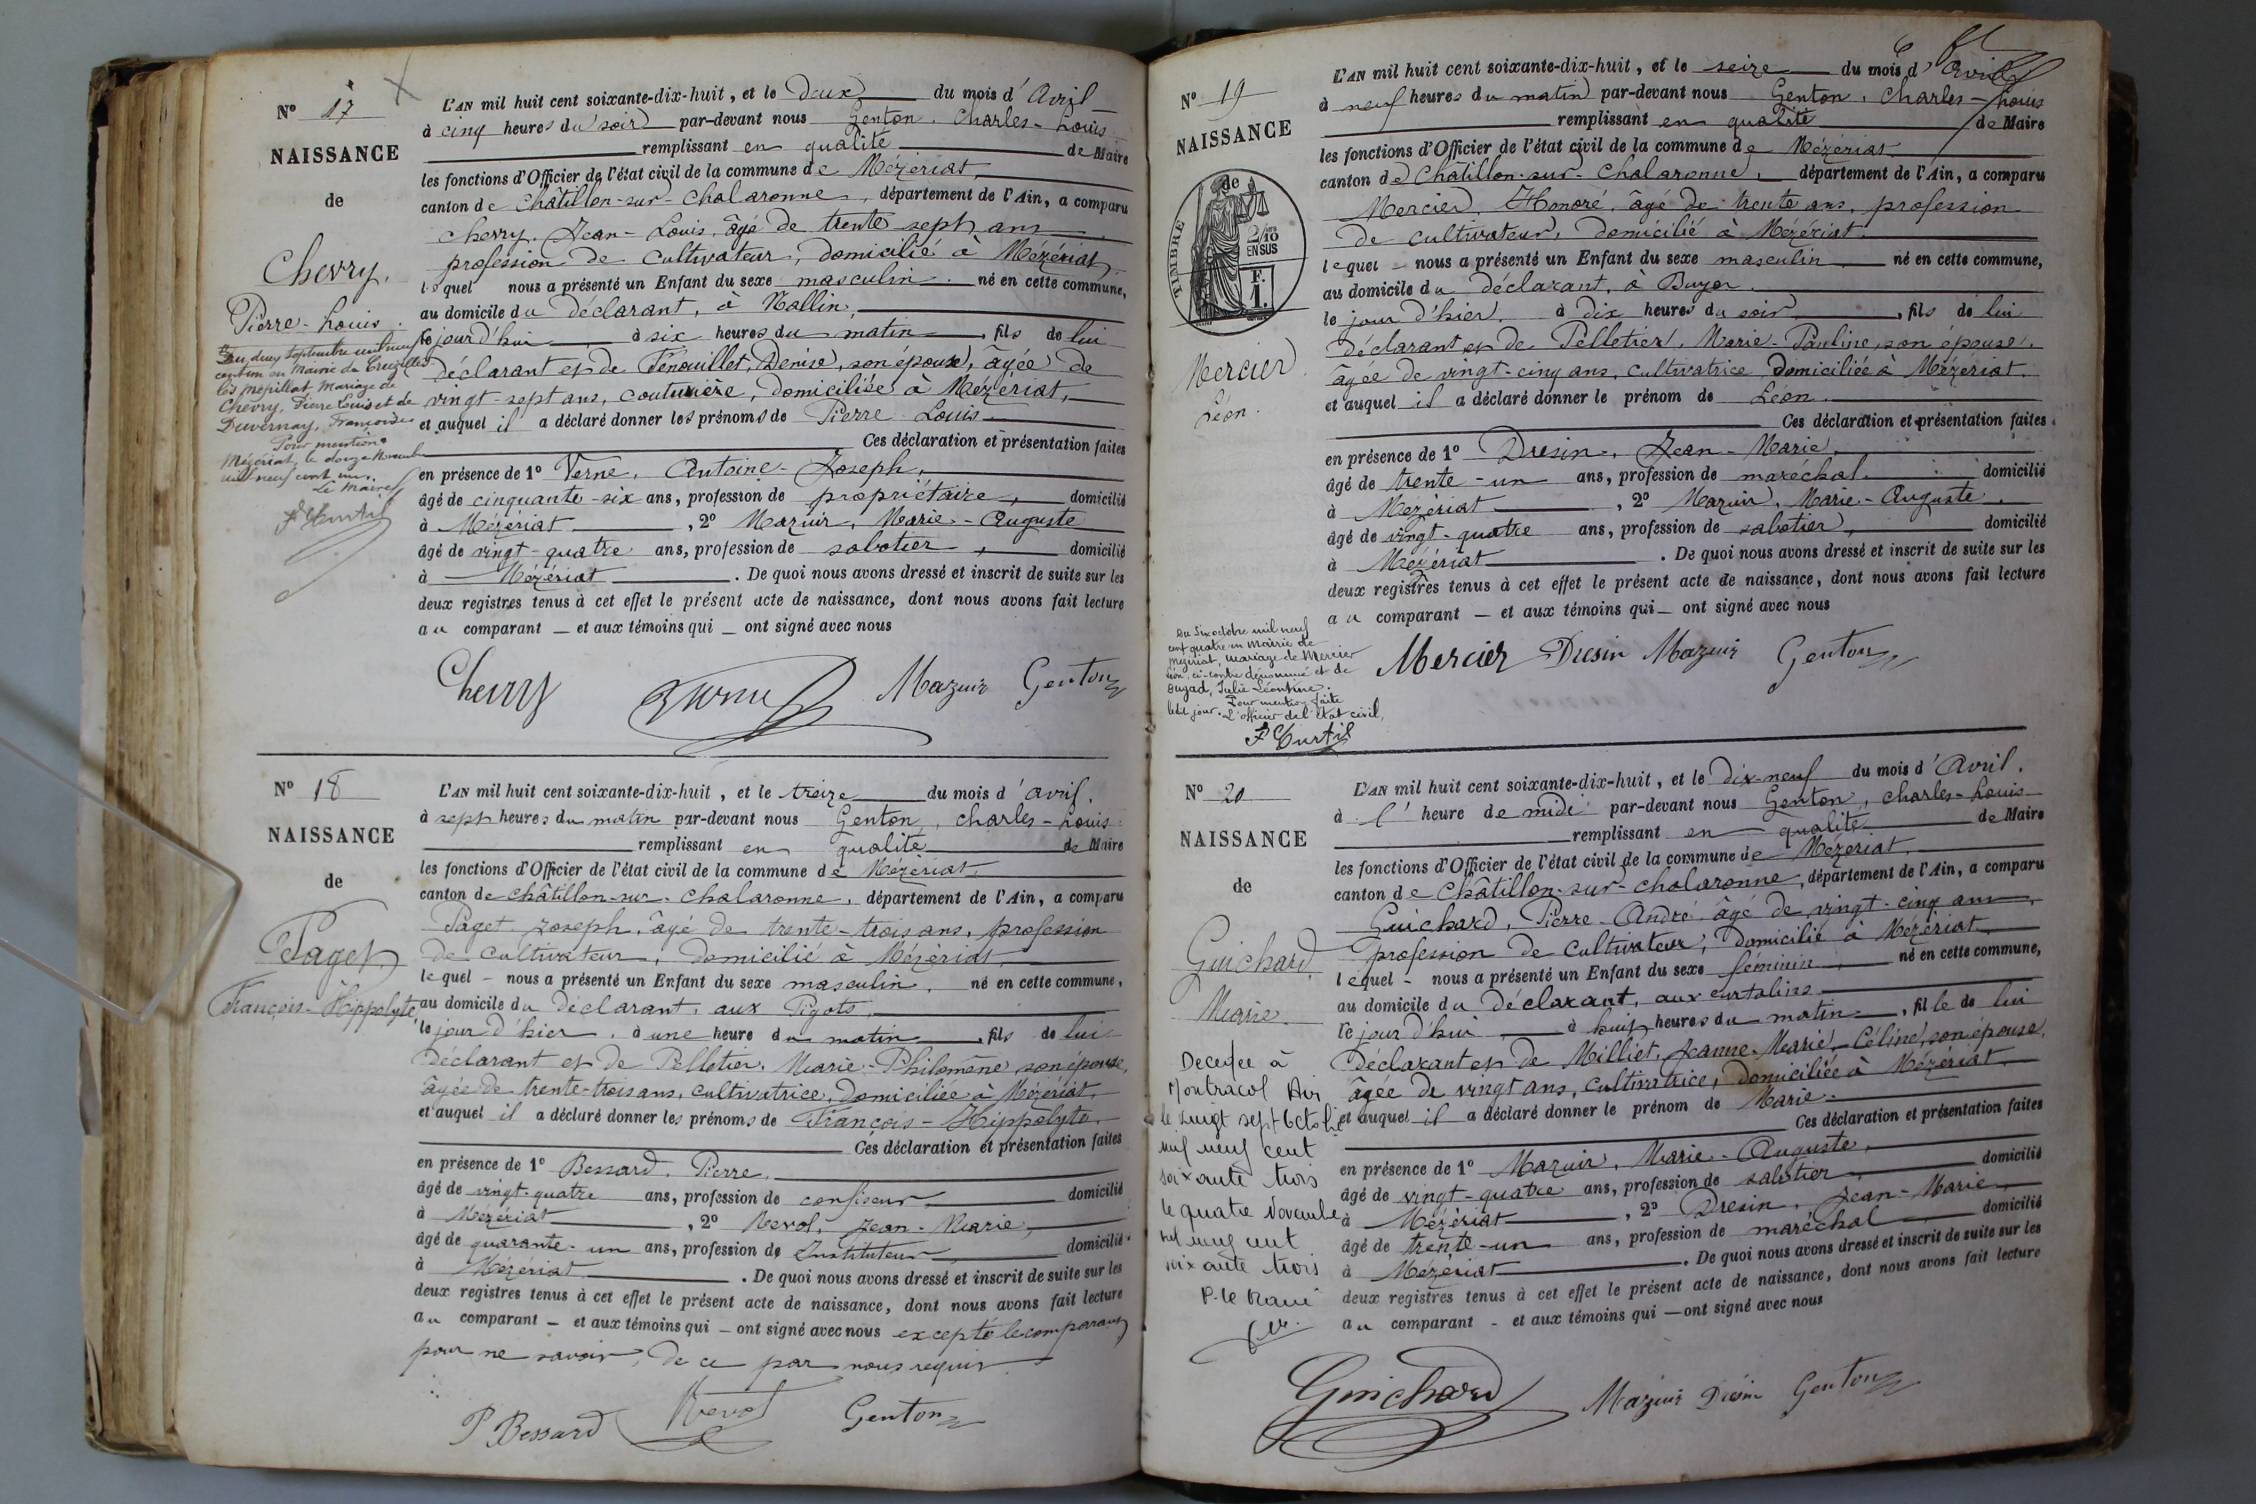 N° 17
NAISSANCE
de
Chevry.
Pierre-Louis.
L'AN mil huit cent soixante-dix-huit, et le deux du mois d'Avril
à cinq heures du soir par-devant nous Genton, Charles-Louis
remplissant en qualité de Maire
les fonctions d'Officier de l'état civil de la commune de Mézériat,
canton de Châtillon-sur-Chalaronne, département de l'Ain, a comparu
Chevry, Jean-Louis, âgé de trente sept ans
profession de cultivateur, domicilié à Mézériat,
lequel nous a présenté un Enfant du sexe masculin né en cette commune,
au domicile du déclarant, à Vallin,
le jour d'hui à six heures du matin, fils de lui
déclarant et de Fenouillet, Denise, son épouse, âgée de
vingt-sept ans, couturière, domiciliée à Mézériat,
et auquel il a déclaré donner les prénoms de Pierre Louis
Ces déclaration et présentation faites
en présence de 1° Verne, Antoine-Joseph,
âgé de cinquante-six ans, profession de propriétaire, domicilié
à Mézériat, 2° Mazuir, Marie-Auguste
âgé de vingt-quatre ans, profession de sabotier, domicilié
à Mézériat. De quoi nous avons dressé et inscrit de suite sur les
deux registres tenus à cet effet le présent acte de naissance, dont nous avons fait lecture
au comparant et aux témoins qui ont signé avec nous
deux septembre mil neuf
cent un en Mairie de Cruzilles
les Mépillat Mariage de
Chevry, Pierre Louis et de
Duvernay, Françoise
Pour mention
Mézériat, le douze Novembre
mil neuf cent un.
Le Maire
Curtil
Chevry Verne Mazuir Genton
N° 18
NAISSANCE
de
Paget
François-Hippolyte
L'AN mil huit cent soixante-dix-huit, et le treize du mois d'avril,
à sept heures du matin par-devant nous Genton, Charles-Louis
remplissant en qualité de Maire
les fonctions d'Officier de l'état civil de la commune de Mézériat,
canton de Châtillon-sur-Chalaronne, département de l'Ain, a comparu
Paget Joseph, âgé de trente-trois ans, profession
de cultivateur, domicilié à Mézériat,
lequel nous a présenté un Enfant du sexe masculin, né en cette commune,
au domicile du déclarant, aux Pigots,
le jour d'hier, à une heure du matin, fils de lui
déclarant et de Pelletier, Marie-Philomène son épouse,
âgée de trente-trois ans, cultivatrice, domiciliée à Mézériat,
et auquel il a déclaré donner les prénoms de François-Hippolyte.
Ces déclaration et présentation faites
en présence de 1° Bessard, Pierre,
âgé de vingt-quatre ans, profession de confiseur, domicilié
à Mézériat, 2° Revol, Jean-Marie,
âgé de quarante-un ans, profession de Instituteur domicilié
à Mézériat. De quoi nous avons dressé et inscrit de suite sur les
deux registres tenus à cet effet le présent acte de naissance, dont nous avons fait lecture
au comparant et aux témoins qui ont signé avec nous excepté le comparant
pour ne savoir, de ce par nous requis
P Bessard Revol Genton
N° 19
NAISSANCE
de
TIMBRE
2/10
EN SUS
F.
1.
Mercier
Léon.
L'AN mil huit cent soixante-dix-huit, et le seize du mois d'avril
à neuf heures du matin par-devant nous Genton, Charles-Louis
remplissant en qualité de Maire
les fonctions d'Officier de l'état civil de la commune de Mézériat
canton de Châtillon-sur-Chalaronne, département de l'Ain, a comparu
Mercier, Honoré, âgé de trente ans, profession
de cultivateur, domicilié à Mézériat,
lequel nous a présenté un Enfant du sexe masculin né en cette commune,
au domicile du déclarant, à Buyer.
le jour d'hier, à dix heures du soir, fils de lui
déclarant et de Pelletier, Marie-Pauline, son épouse,
âgée de vingt-cinq ans, cultivatrice domiciliée à Mézériat,
et auquel il a déclaré donner le prénom de Léon.
Ces déclaration et présentation faites
en présence de 1° Dresin, Jean-Marie,
âgé de trente-un ans, profession de maréchal domicilié
à Mézériat, 2° Mazuir, Marie-Auguste,
âgé de vingt-quatre ans, profession de sabotier, domicilié
à Mézériat. De quoi nous avons dressé et inscrit de suite sur les
deux registres tenus à cet effet le présent acte de naissance, dont nous avons fait lecture
au comparant et aux témoins qui ont signé avec nous
Du six octobre mil neuf
cent quatre en Mairie de
Mézériat, mariage de Mercier
Léon, ci-contre dénommé et de
Dugad, Julie Léontine.
Pour mention faite
ledit jour. L'officier de l'état civil,
Curtil
Mercier Dresin Mazuir Genton
N° 20
NAISSANCE
de
Guichard
Marie
L'AN mil huit cent soixante-dix-huit, et le dix-neuf du mois d'Avril.
à l'heure de midi par-devant nous Genton, Charles-Louis
remplissant en qualité de Maire
les fonctions d'Officier de l'état civil de la commune de Mézériat.
canton de Châtillon-sur-Chalaronne, département de l'Ain, a comparu
Guichard, Pierre-André âgé de vingt-cinq ans,
profession de cultivateur, domicilié à Mézériat,
lequel nous a présenté un Enfant du sexe féminin, né en cette commune,
au domicile du déclarant, aux curtalins
le jour d'hui à huit heures du matin, fille de lui
déclarant et de Milliet, Jeanne-Marie-Céline, son épouse,
âgée de vingt ans, cultivatrice, domiciliée à Mézériat
et auquel il a déclaré donner le prénom de Marie.
Ces déclaration et présentation faites
en présence de 1° Mazuir, Marie-Auguste,
âgé de vingt-quatre ans, profession de sabotier, domicilié
à Mézériat, 2° Dresin, Jean-Marie,
âgé de trente-un ans, profession de maréchal domicilié
à Mézériat. De quoi nous avons dressé et inscrit de suite sur les
deux registres tenus à cet effet le présent acte de naissance, dont nous avons fait lecture
au comparant et aux témoins qui ont signé avec nous
Decedee à
Montracol Ain
le vingt sept Octobre
mil neuf cent
soixante trois
le quatre Novembre
mil neuf cent
soixante trois
P. le Maire
Guichard Mazuir Dresin Genton